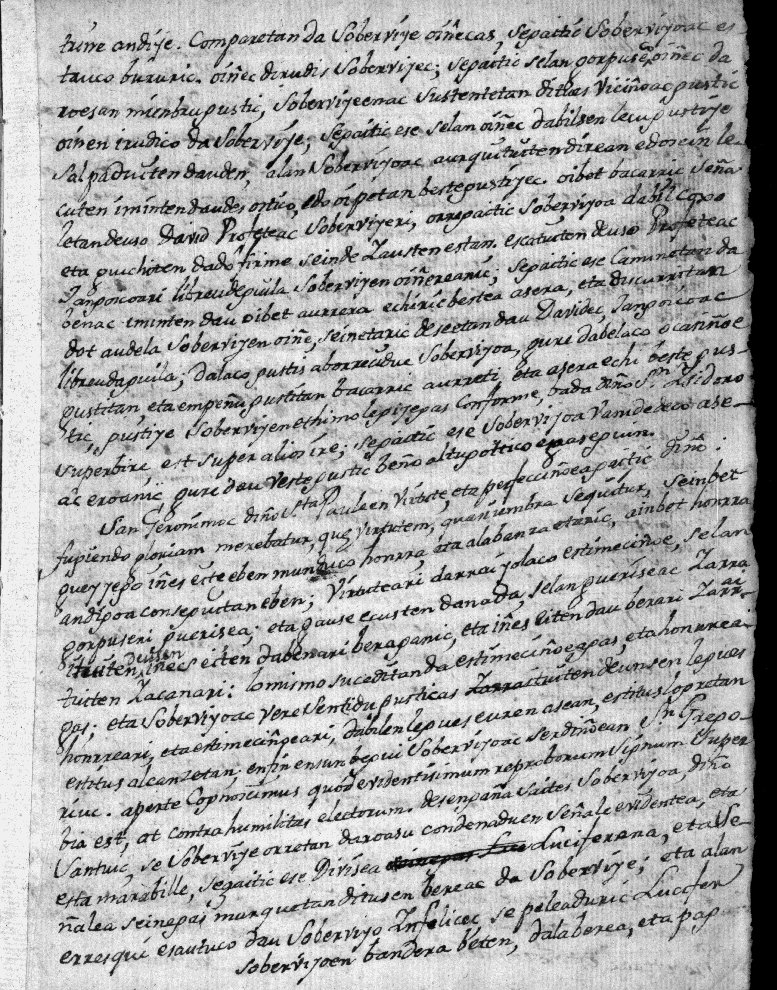 tuire andije. Comparetan da Soberviye oiñecas, sepaitic Soberviyoac es
tauco bururic. oiñec dirudis Soberviyec; sepaitic selan gorpuse oiñec da
roesan miembru pustic, Soberviyeenac sustentetan ditus viciñoac pustic
oinen irudico da Soberviye, sepaitic ese selan oiñec dabilsen leku pustije
salpaduten dauden, alan Soberviyoac aurquituten direan edosein le
cuten iminten daudes ortico, edo oipetan beste pustijec. oibet bacarric seña
letan deuso David Profeteac Soberviyeri, orrepaitic Soberviyoa dabil
eta quichiten dado firme seinde Zausten estan. escatuten deuso Profeteac
Jangoicoari libreu deguila Soberviyen oiñerean; sepaitic ese Caminetan da
benac iminten dau oibet aurrera echiric bestea asera, eta discurritan
dot audela Soberviyen oiñe, seinetaric desetan dau Davidec, Jangoicoac
libreu daguila; dalaco pustis aborreidue Soberviyoa, gure dabelaco ocasiñoe
pustitan, eta empeñu pustitan bacarric aurreti, eta asera echi beste pus-
tic, pustiye Soberviyen ethimolegijegas Conforme, bada diño Sn. Isidoro
superbire est super alios ire; sepaitic ese Soberviyoa vanidedeco ase
ac eroanic gure dau veste pustic beño altuportico egas eguin.
San Geronimoc diño Sta. Paulaen virtute, eta perfecciñoea paitic dim:
fugiendo gloriam merebatur, que virtutem, quasi umbra sequitur, seinbet
guey yepo iñes egiten eben munduco honrra, eta alabanza etaric, ainbet honrra
andigoa conseguitan eben; Virtuteari darrai yolaco estimeciñoe, selan
gorpuseri guerisea; eta gause ecusten danada, selan gueriseac Zarra
ituten dussen iñes eiten dabenari beraganic, eta iñes eiten dau berari Zarrai
tuiten Zacanari: lo mismo suceditan da estimeciñoegas, eta honrrea-
gas; eta Soberviyoac vere sentidu pusticas Zarraituiten deunsen legues
honrreari, eta estimeciñoeari, dabilen legues euren asean, estitus lopretan
estitus alcanzetan; enfin ensun begui Soberviyoac serdiñoean Sn. Grego-
rioc. aperte Cognoscimus quod evidentisimum reproborum signum super
bia est, at contra humilitas electorum. desengaña saites Soberviyoa, diño
Santuic, se Soberviye orretan daroasu condenaduen señale evidentea, eta
esta marabille, sepaitic ese Divisea Luciferena, eta sse
ñalea seinegas marquetan ditusen bereac da Soberviye; eta alan
erresqui esautuco dau Soberviyo Infelicec se peleaduric Luccifer
Soberviyoen bandera beten, dala berea, eta pag